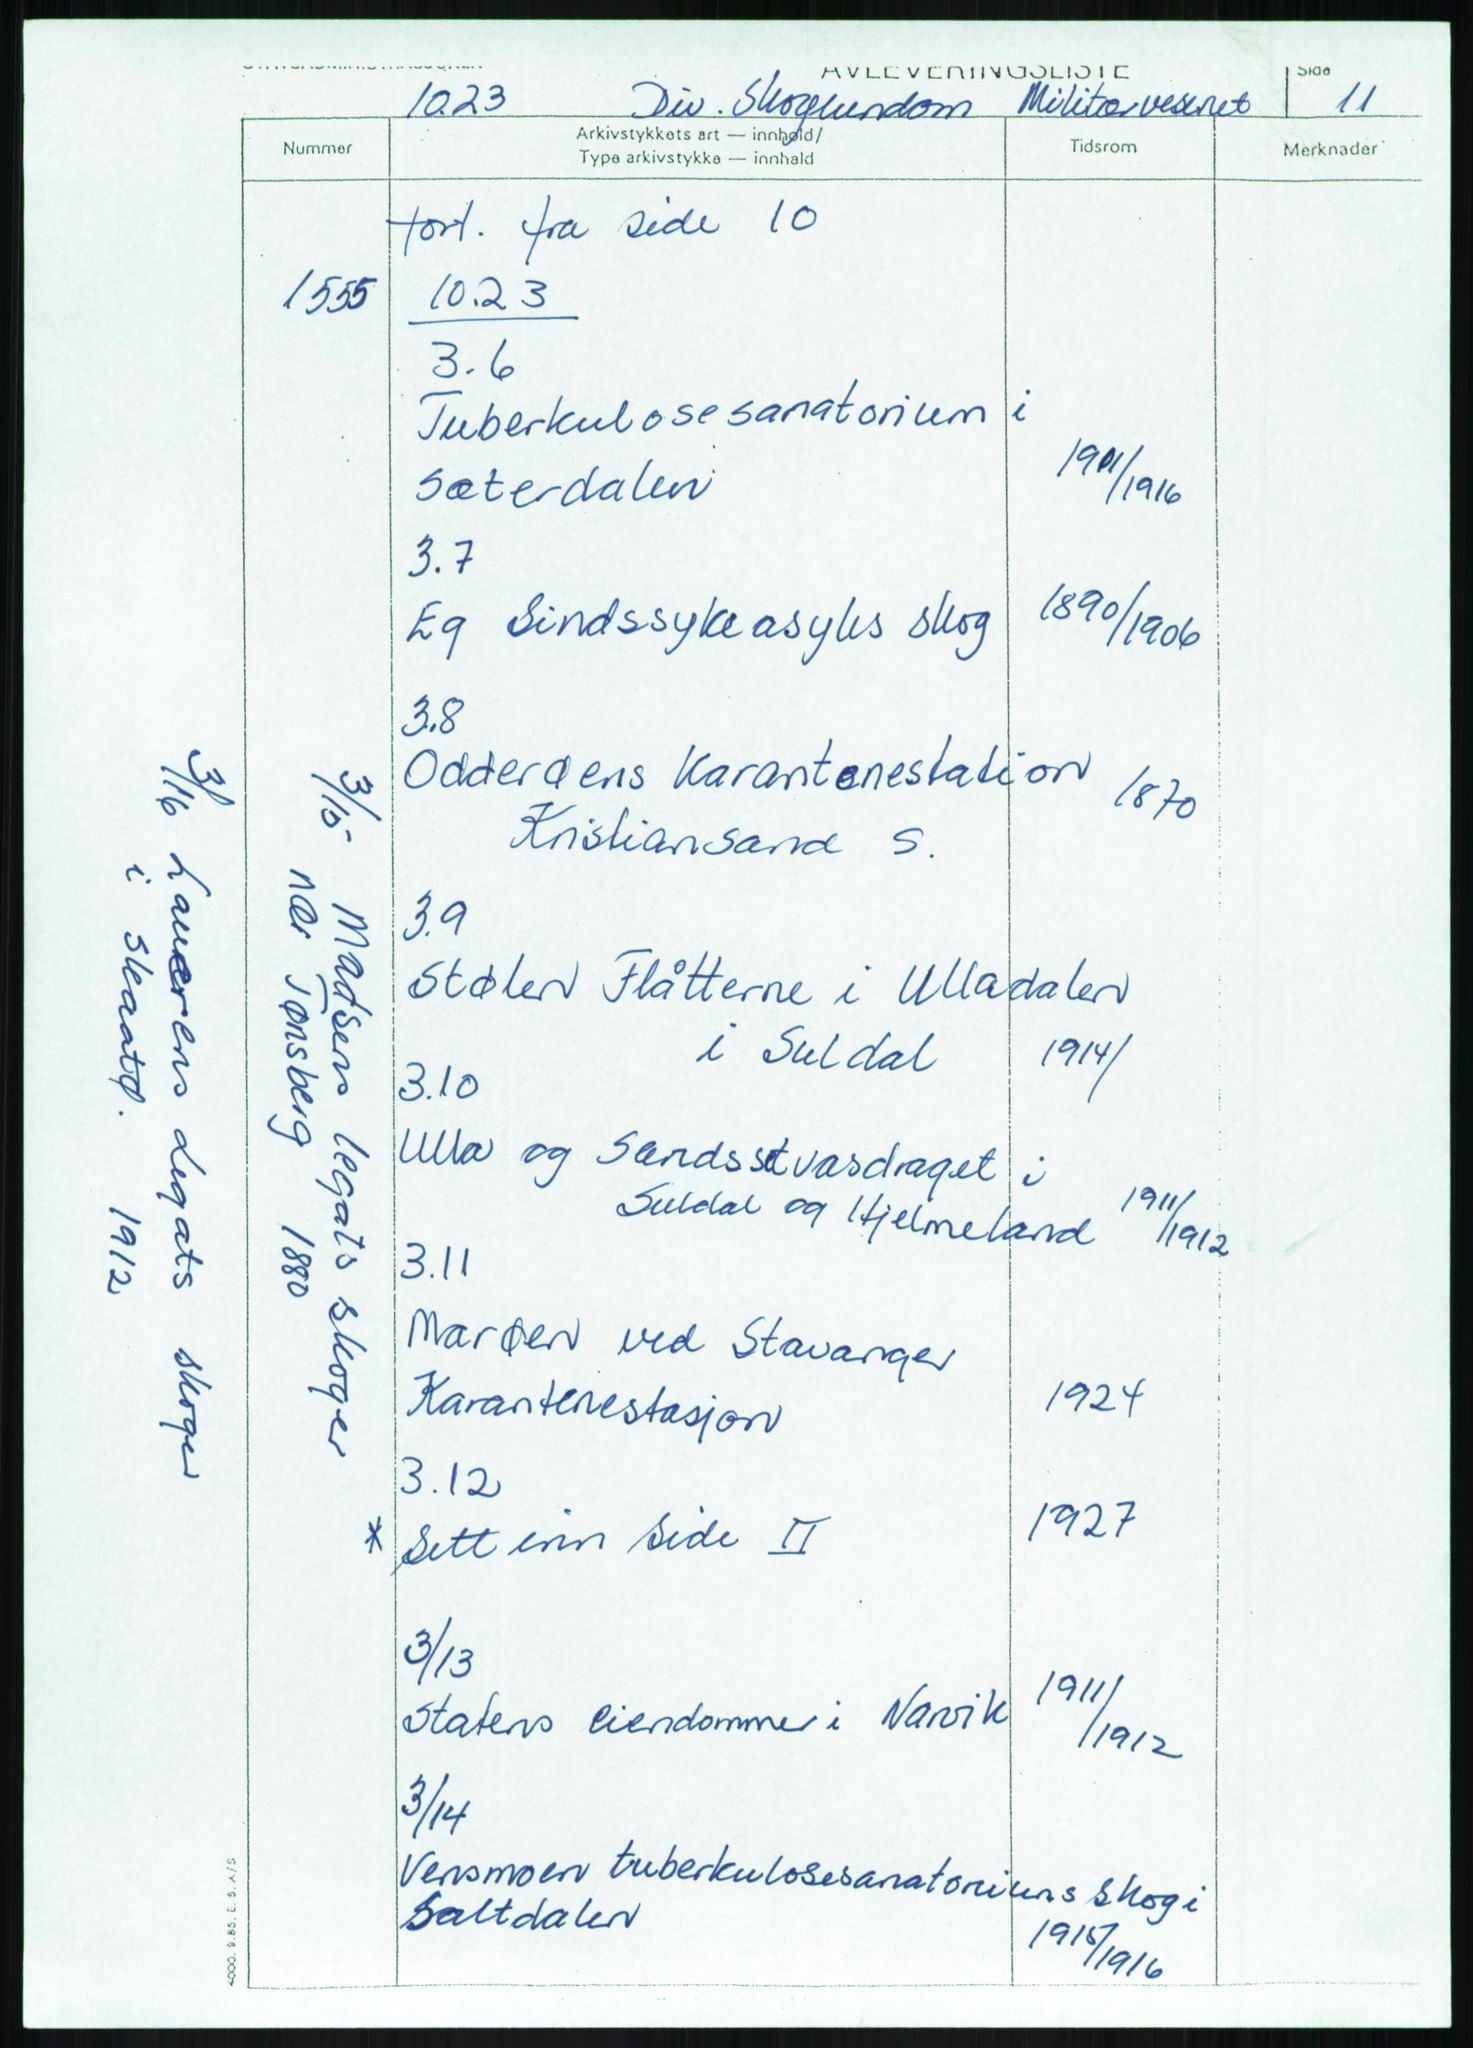 AVLEVERINGSLISTE
Side
10.23 Div. Skogeiendom Militærvesenet 11
Nummer
Arkivstykkets art — innhold/
Type arkivstykke — innhald
Tidsrom
Merknader
fort. fra side 10
1555 10.23
3.6
Tuberkulosesanatorium i
Sæterdalen 1901/1916
3.7
Eg Sindssykeasyls skog 1890/1906
3.8
Odderøens Karantenestation 1870
Kristiansand S.
3.9
Stølen Flåtterne i Ulladalen
i Suldal 1914/
3.10
Ulla og Sandsavasdraget i
Suldal og Hjelmeland 1911/1912
3.11
Marøen ved Stavanger
Karantenestasjon 1924
3.12
* Sett inn side II 1927
3/13
Statens eiendommer i Narvik 1911/1912
3/14
Vensmoen tuberkulosesanatoriums skog i
Saltdalen 1915/1916
3/15 Madsens legats skoger
nær Tønsberg 1880
3/16 Laurens Legats skoger
i Skaatø. 1912
4000. 9.85. E. S. A/S